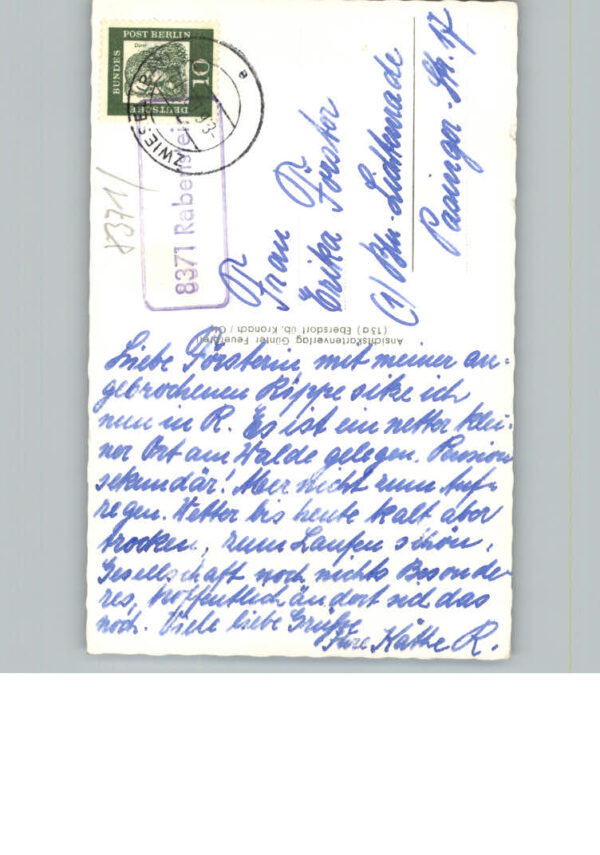 DEUTSCHE BUNDESPOST BERLIN
Dürer
10
ZWIESEL
8371 Rabenstein
8371/
Frau
Erika Förster
(1) Bln-Lichtenrade
Paainger-Str. 17
Ansichtskartenverlag Günter Feuerpfeil
(13a) Ebersdorf üb. Kronach / Ofr
Liebe Försterin, mit meiner an-
gebrochenen Rippe sitze ich
nun in R. Es ist ein netter klei-
ner Ort am Walde gelegen. Pension
sekundär! Aber nicht zum Auf-
regen. Wetter bis heute kalt aber
trocken, zum Laufen schön.
Gesellschaft noch nichts Besonde-
res, hoffentlich ändert sich das
noch. Viele liebe Grüße
Ihre Käthe R.